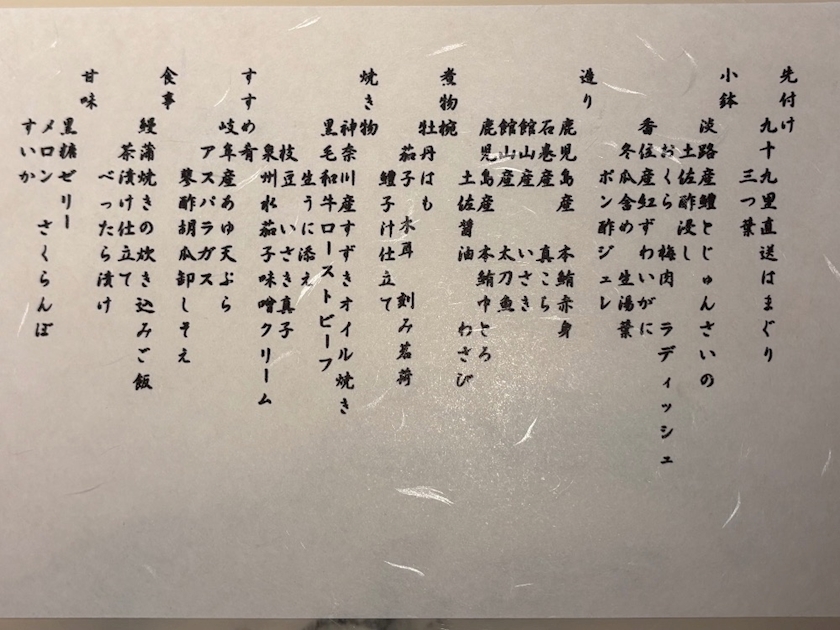 先付け
九十九里直送はまぐり
三つ葉
小鉢
淡路産鱧とじゅんさいの
土佐酢浸し
おくら 梅肉 ラディッシュ
香住産紅ずわいがに
冬瓜含め 生湯葉
ポン酢ジュレ
造り
鹿児島産 本鮪赤身
石巻産 真こち
館山産 いさき
館山産 太刀魚
鹿児島産 本鮪中とろ
土佐醤油 わさび
煮物椀
牡丹はも
茄子 木耳 刻み茗荷
鱧子汁仕立て
焼き物
神奈川産すずきオイル焼き
黒毛和牛ローストビーフ
生うに添え
枝豆 いさき真子
泉州水茄子味噌クリーム
すすめ肴
岐阜産あゆ天ぷら
アスパラガス
蓼酢胡瓜卸しそえ
食事
鰻蒲焼きの炊き込みご飯
茶漬け仕立て
べったら漬け
甘味
黒糖ゼリー
メロン さくらんぼ
すいか